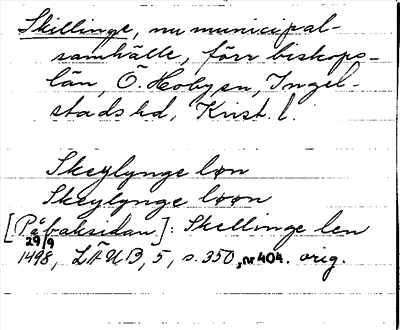 Skillinge, nu municipal-
samhälle, förr biskops-
län, Ö. Hoby sn, Ingel-
stads hd, Krist. l.
Skeylynge løn
Skeylynge løøn
[På baksidan]: Skellinge len
29/9
1498, LÄUB, 5, s. 350, nr 404. orig.